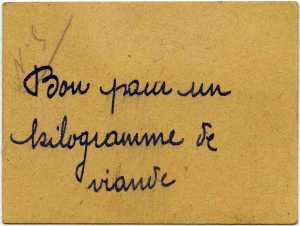 Bon pour un
kilogramme de
viande